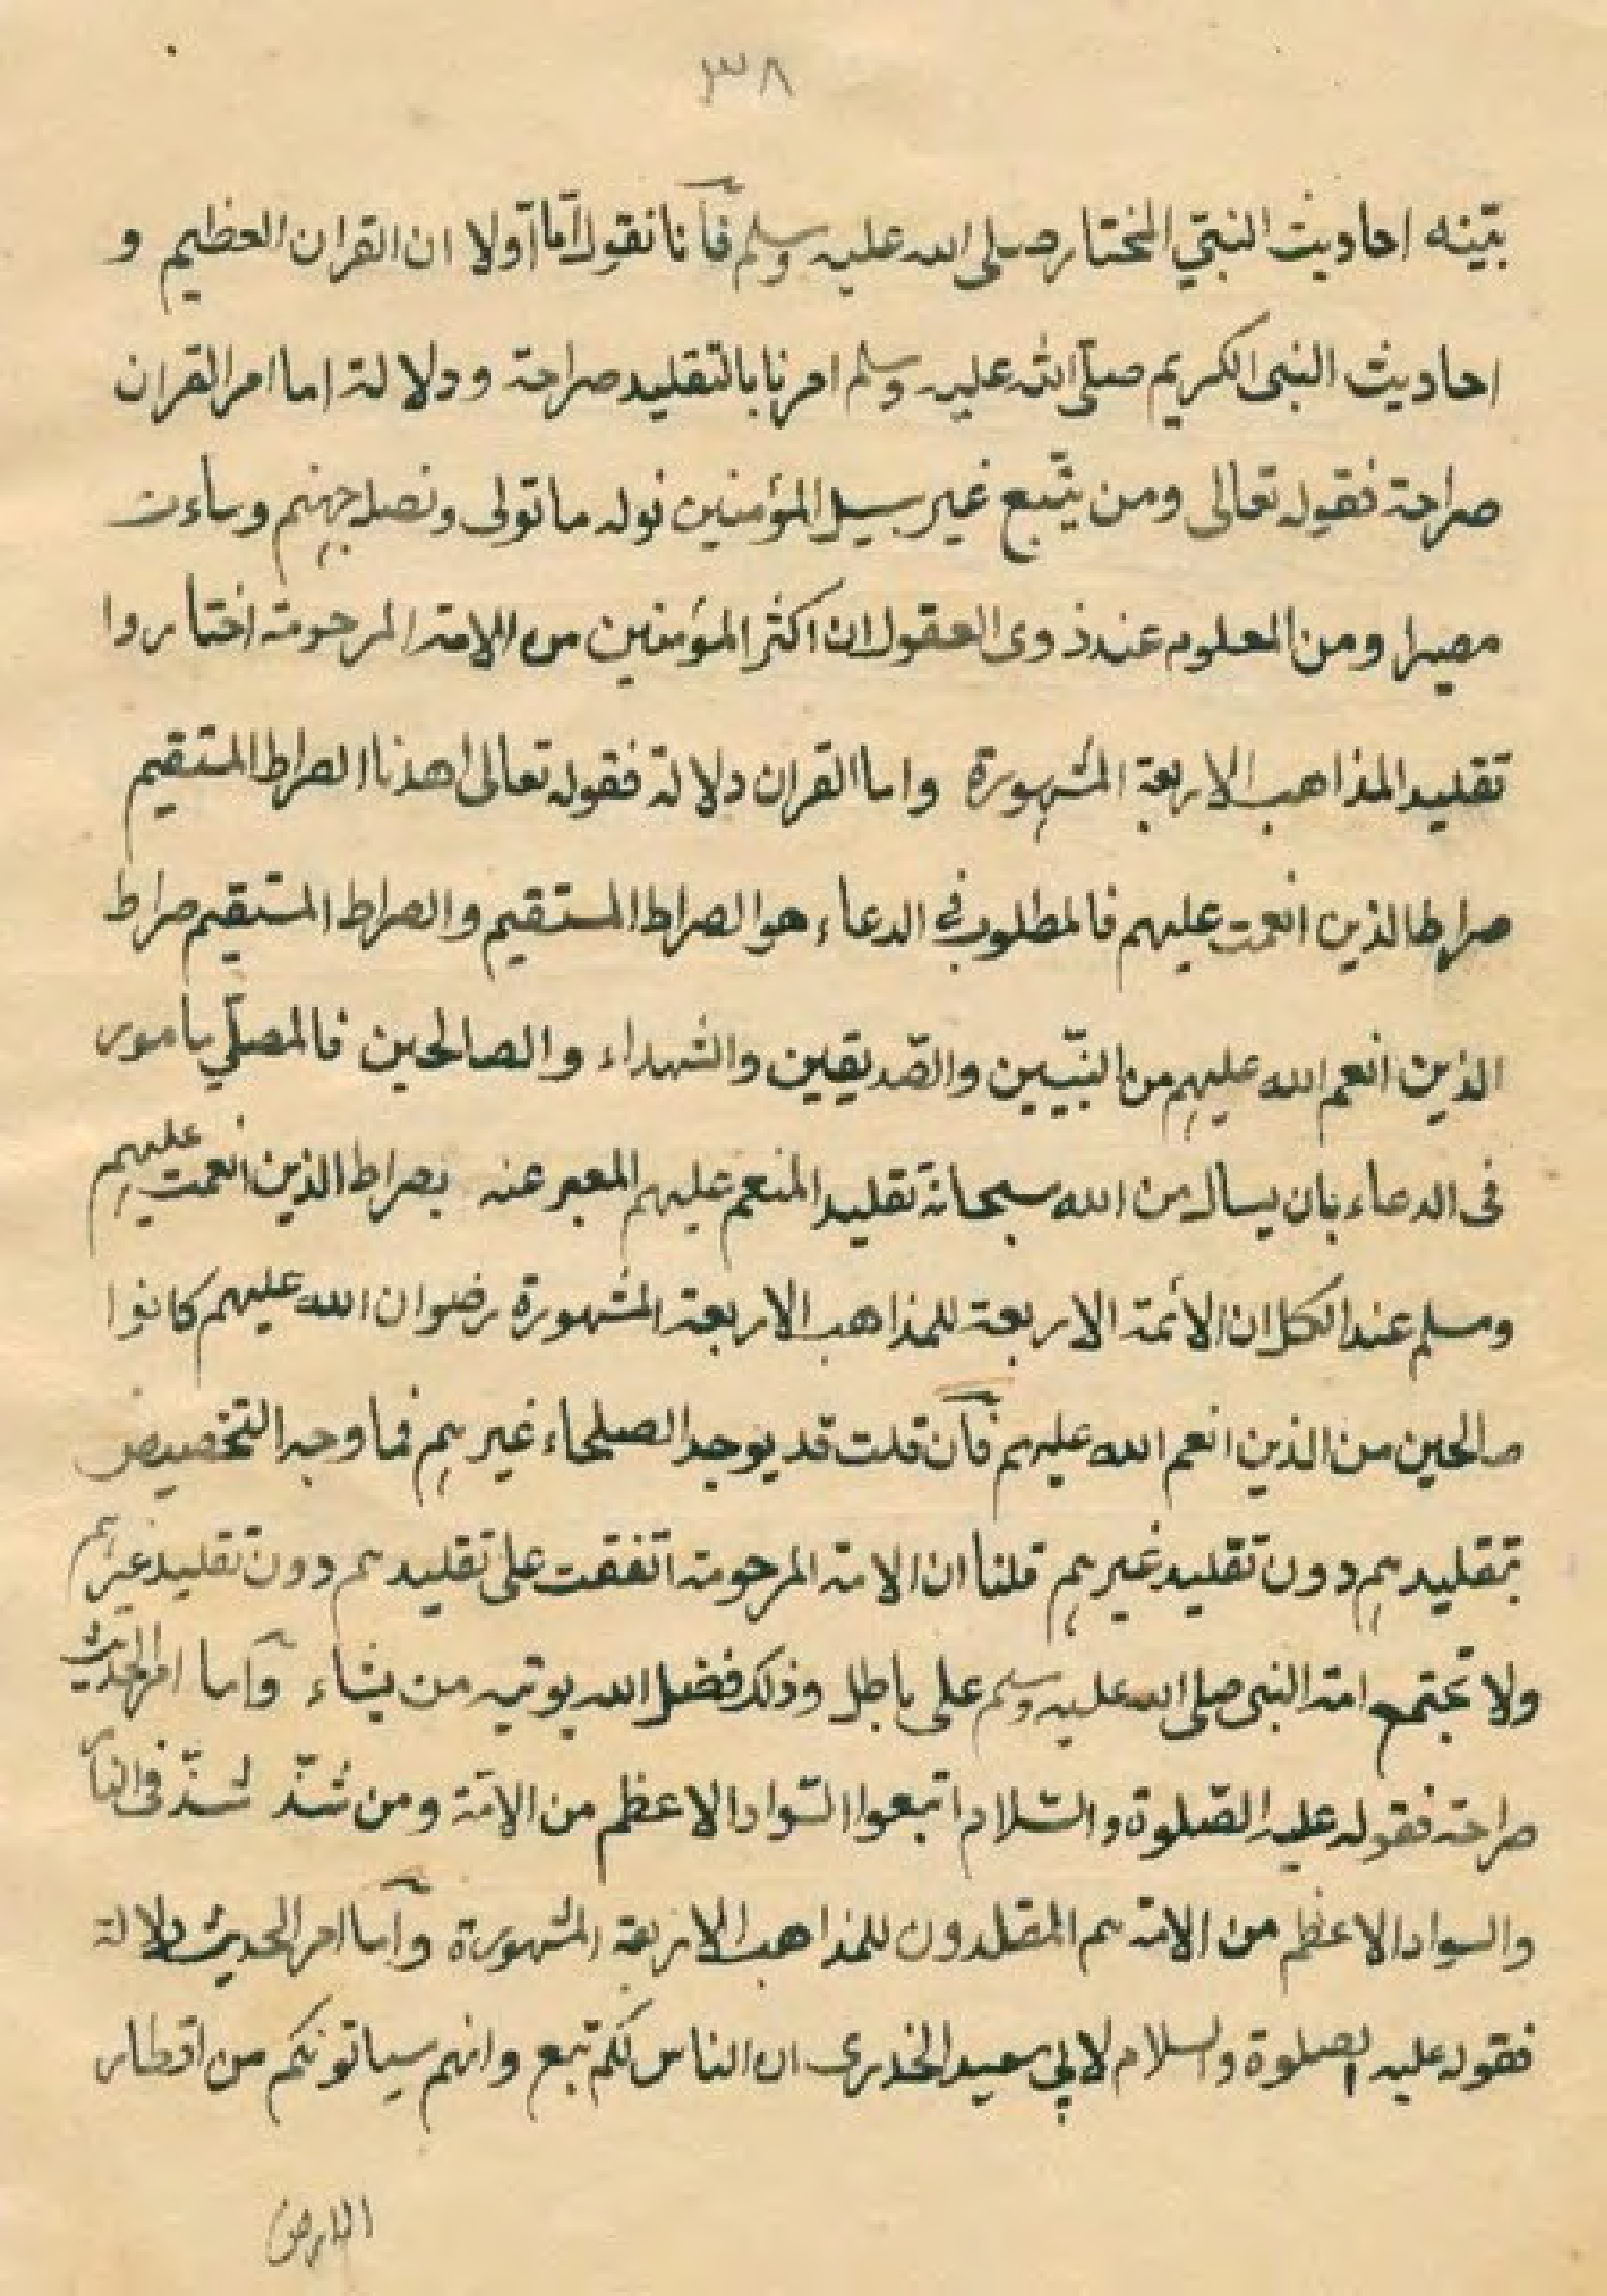 ٣٨
بيّنه احاديث النبيّ المختار صلى الله عليه وسلم فآنا نقول امّا اوّلا ان القران العظيم و
احاديث النبى الكريم صلّى الله عليه وسلم امرنا بالتقليد صراحة ودلالة اما امر القران
صراحة فقوله تعالى ومن يتّبع غير سبيل المؤمنين نوله ما تولى ونصله جهنم وساءت
مصيرا ومن المعلوم عند ذوى العقول ان اكثر المؤمنين من الامة المرحومة اختاروا
تقليد المذاهب الاربعة المشهورة واما القران دلالة فقوله تعالى اهدنا الصراط المستقيم
صراط الذين انعمت عليهم فالمطلوب فى الدعاء هو الصراط المستقيم والصراط المستقيم صراط
الذين انعم الله عليهم من النبّيين والصّديقين والشهداء والصالحين فالمصلّي مامور
فى الدعاء بان يسال من الله سبحانه تقليد المنعم عليهم المعبر عنه بصراط الذين انعمت عليهم
ومسلم عند الكل ان الائمة الاربعة للمذاهب الاربعة المشهورة رضوان الله عليهم كانوا
صالحين من الذين انعم الله عليهم فآن قلت قد يوجد الصلحاء غيرهم فما وجه التخصيص
بتقليدهم دون تقليد غيرهم قلنا ان الامة المرحومة اتفقت على تقليدهم دون تقليد غيرهم
ولا تجتمع امة النبى صلى الله عليه وسلم على باطل وذلك فضل الله يوتيه من يشاء وآما امر الحديث
صراحة فقوله عليه الصّلوة والسّلام اتبعوا السّواد الاعظم من الامّة ومن شذّ شذّ فى النار
والسواد الاعظم من الامة هم المقلدون للمذاهب الاربعة المشهورة وآما امر الحديث دلالة
فقوله عليه الصلوة والسلام لابي سعيد الخدرى ان الناس لكم تبع وانهم سياتونكم من اقطار
الارض